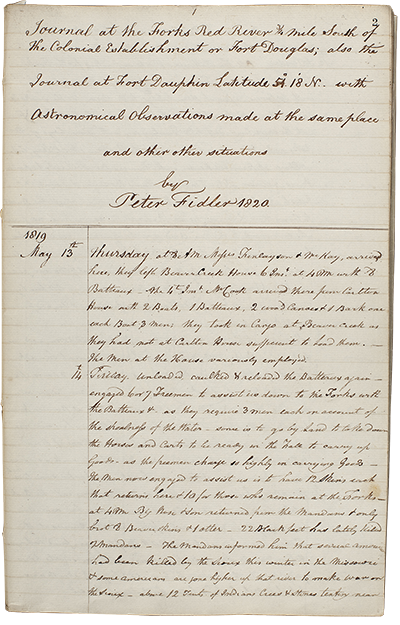 2
Journal at the Forks Red River ¾ mile South of
the Colonial Establishment or Fort Douglas; also the
Journal at Fort Dauphin Latitude 51° 18 N. with
Astronomical Observations made at the same place
and other other situations
by
Peter Fidler 1820.
1819
May 13th Thursday at 8 AM Messrs Finlayson & McKay, arrived
here, they left Beaver Creek House 6 Inst. at 4 PM with 8
Batteaux - Mr Cook arrived there from Carlton
House with 2 Boats, 1 Batteaux, 2 Canoes & 1 Bark one
each Boat 3 men; they took in Cargo at Beaver Creek as
they had not at Carlton House sufficient to load them. -
The Men at the House variously employed.
14th Friday unloaded caulked & reloaded the Batteaux again -
engaged 6 or 7 Freemen to assist us down to the Forks with
the Batteaux &c as they require 3 men each on account of
the shoalness of the Water - some is to go by Land to take down
the Horses and Carts to be ready in the Fall to carry up
Goods - as the freemen charge so highly in carrying Goods -
the Men now engaged to assist us is to have 12 Skins each
that returns here & 10 for those who remain at the Forks -
at 4 PM returned from the Mandans & only
8 Beaver skins & 1 otter - 22 Blackfeet has lately killed
2 Mandans - The Mandans informed him that several
had been killed by the Sioux this winter in the Missouri
& some americans are gone higher up that river to make war on
the Sioux - above 12 Tents of Indians Crees & Stones tenting near